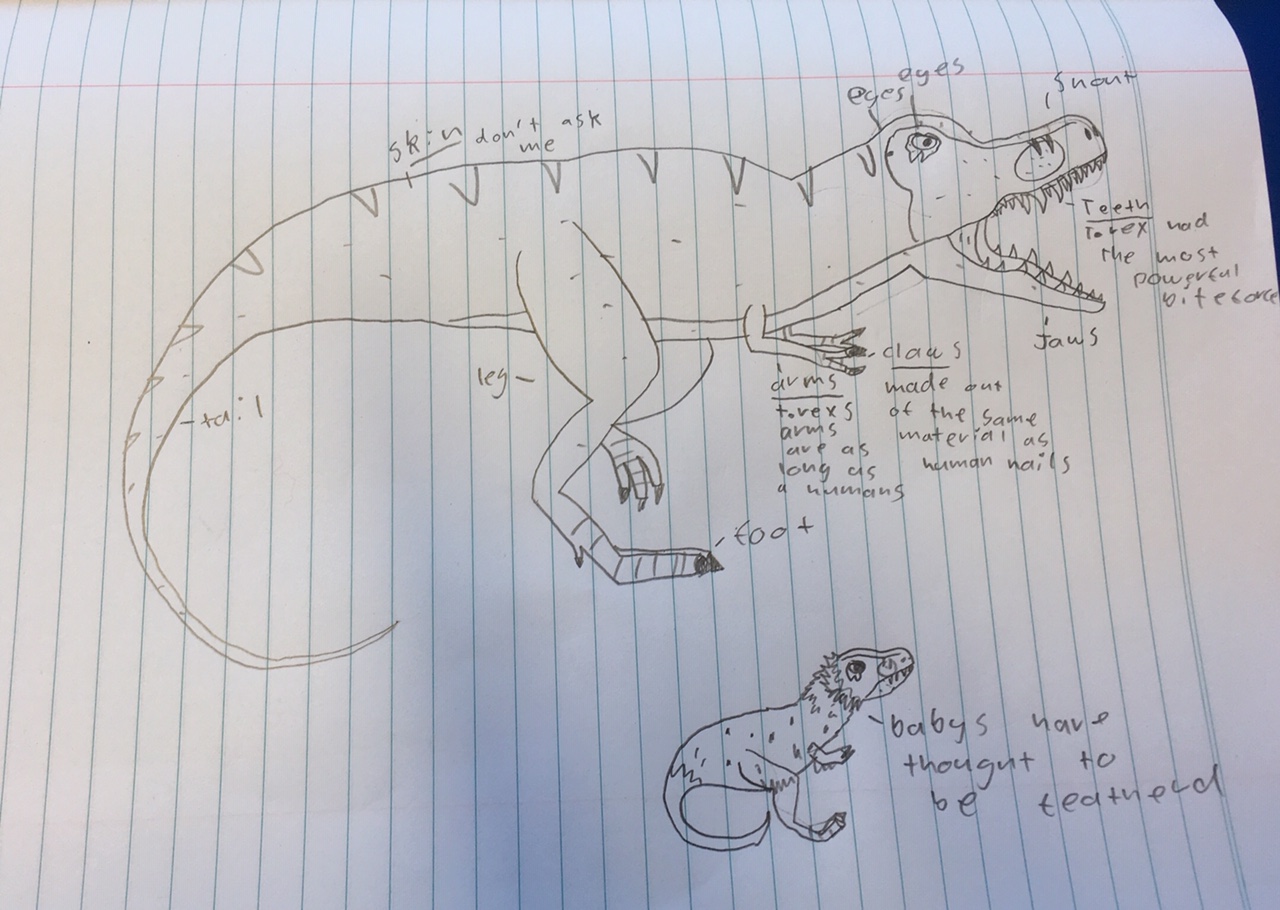 eyes
eyes
snout
skin don't ask
me
Teeth
T.rex had
the most
powerful
biteforce
jaws
claws
made out
of the same
material as
human nails
arms
t.rexs
arms
are as
long as
a humans
leg
tail
foot
babys have
thought to
be featherd